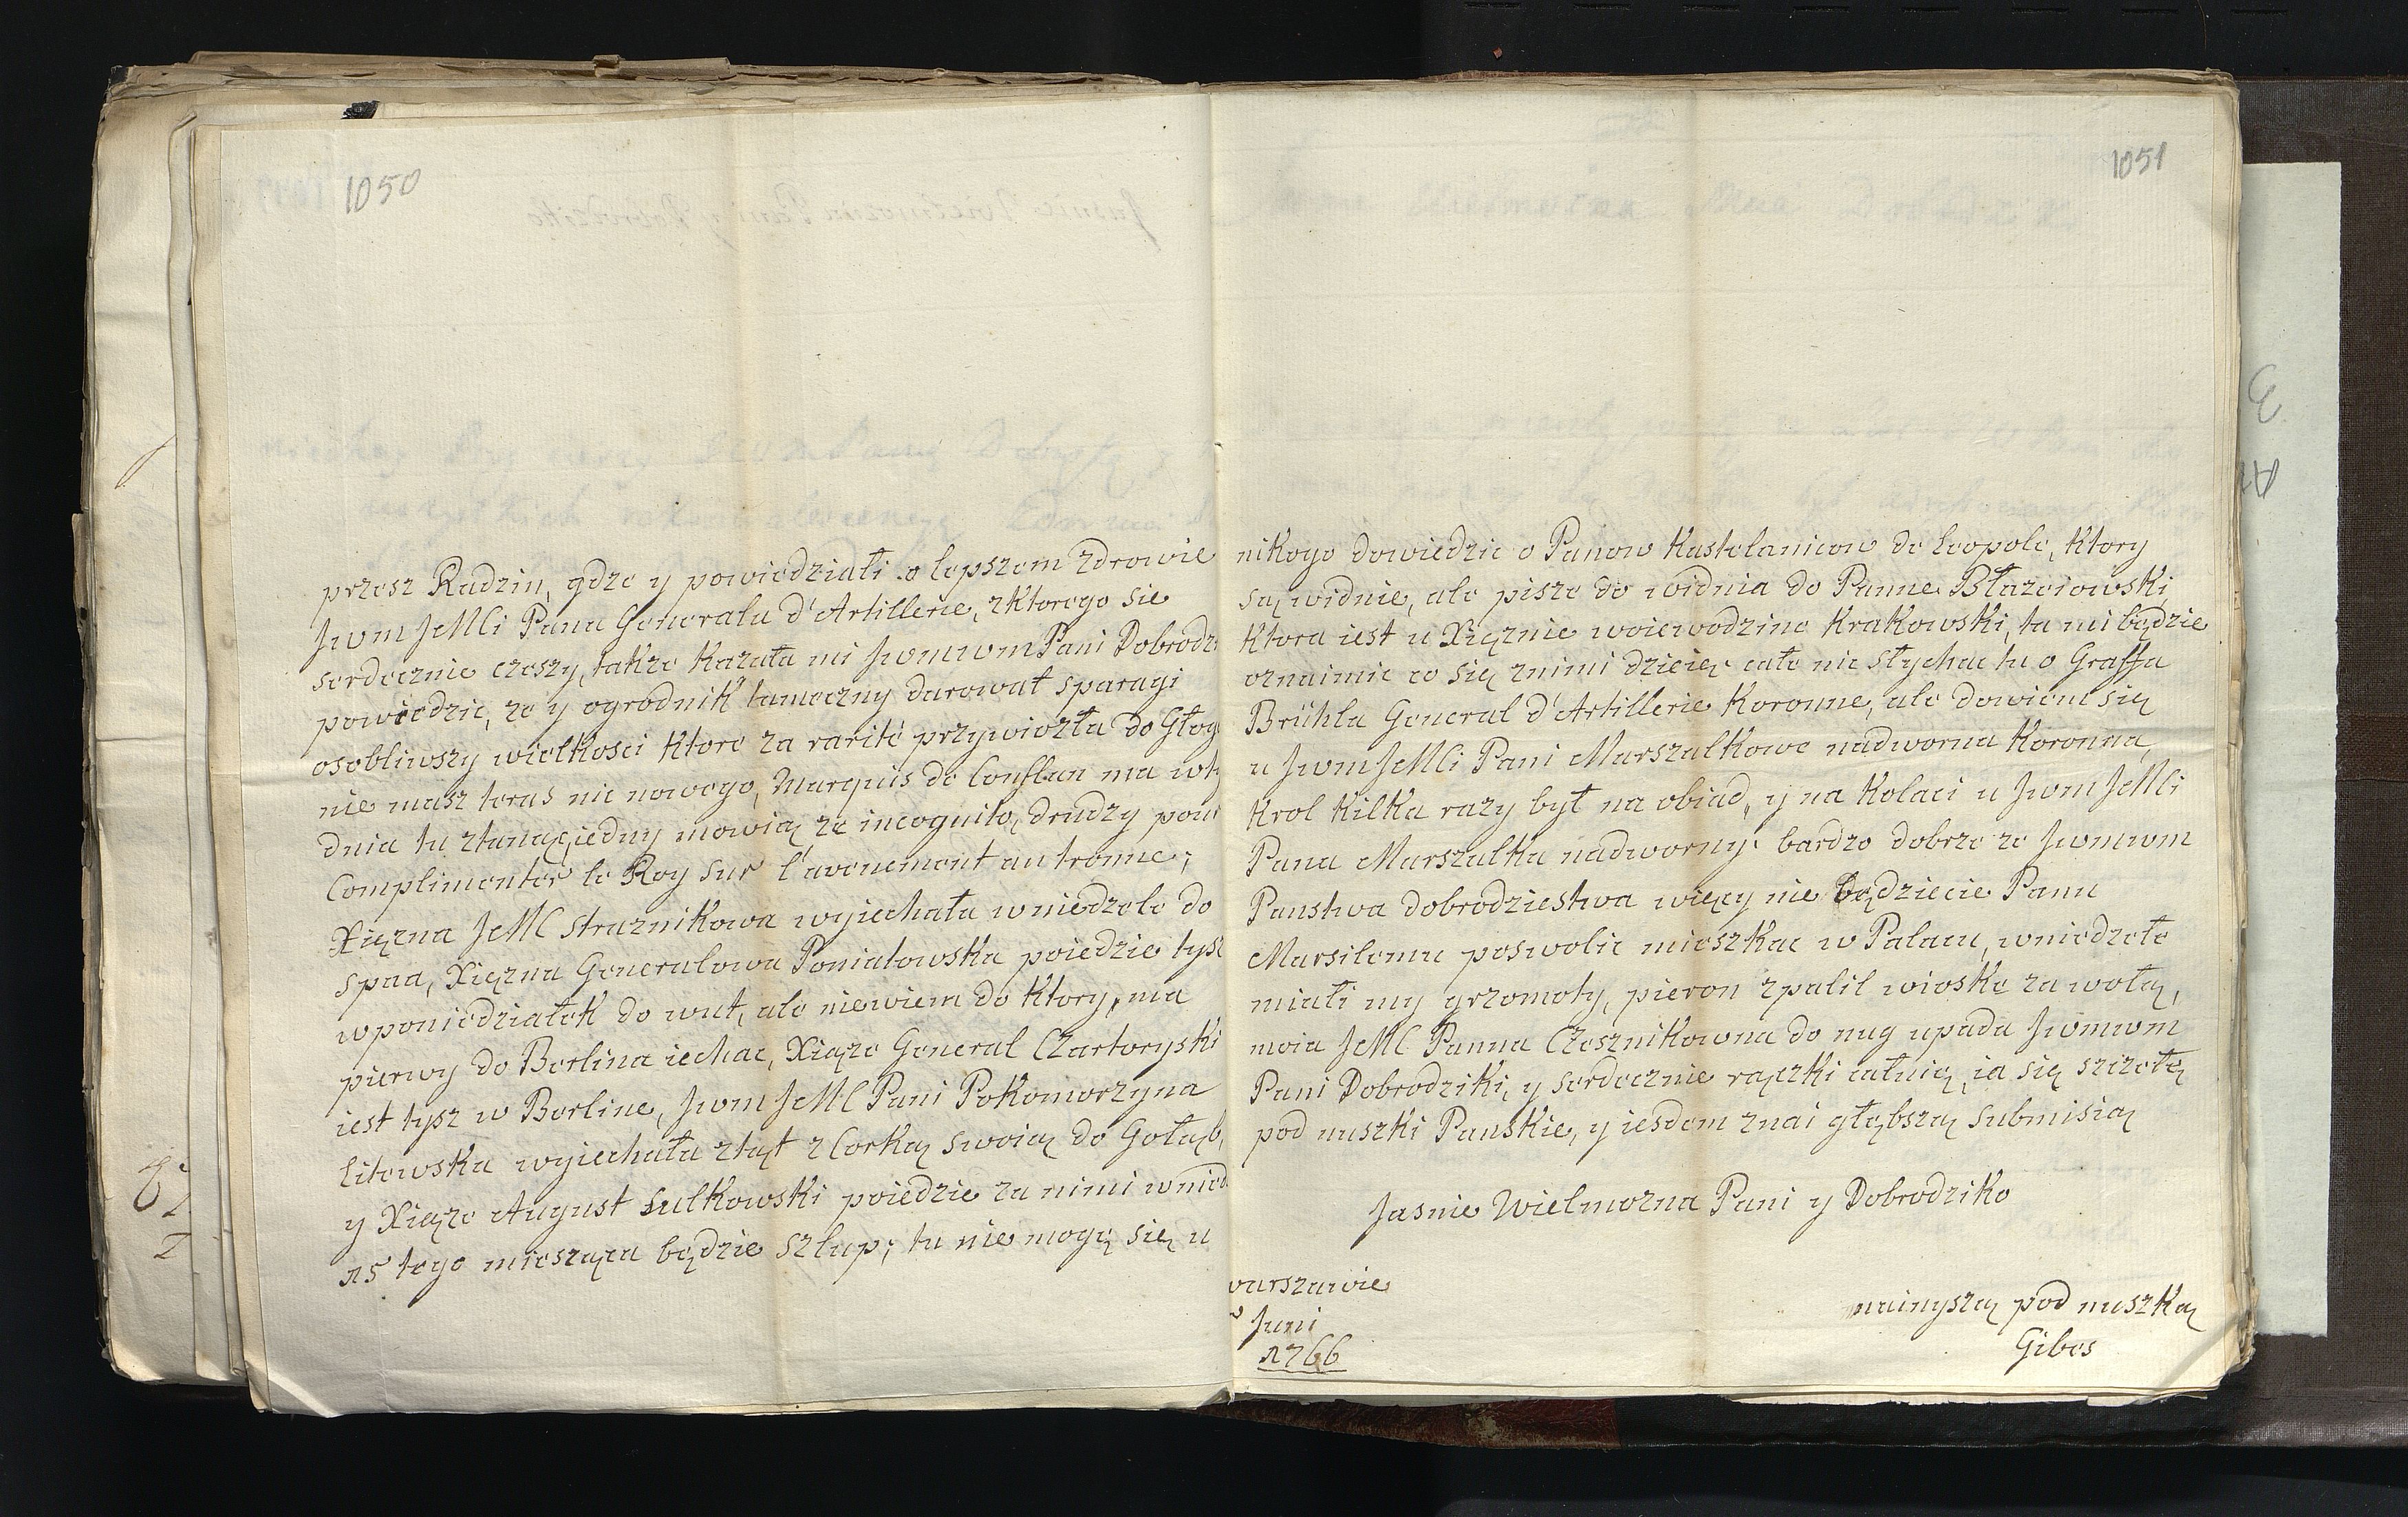 1050
przesz Radzin, gdze y powiedziałi o lepszem zdrowie
JwmJcMCi Pana Generala d'Artillerie, zktorego sie
serdecznie czeszy, takze kazała mi Jwmwm Pani Dobrodzi
powiedzic, ze y ogrodnik tameczny darował sparagi
osobliwszy wielkosci ktore za rarité przywiozła do Głog
nie masz teras nic nowego, Marquis de Conflan ma wty
dnia tu stanąc, iedny mowią ze incognito, drudzy powi
Complimenter le Roy sur l'avenement au tronne;
Xięzna JcMC straznikowa wyiechała wniedzele do
spaa, Xięzna Generalowa Poniatowska poiedzie tysz
wponiedziałek do wut, ale niewiem do ktory, ma
pierwy do Berlina iechac, Xiąze General Czartoryski
iest tysz w Berline, Jwm JcMC Pani Pokomorzyna
litewska wyiechała ztąt z Corką swoią do Gołąb,
y Xiąze August Sulkowski poiedzie za nimi wnied
15 tego miesząca będzie szlup; tu nie mogę się u
1051
nikogo dowiedzic o Panow Kastelanicow de Leopole, ktory
są widnie, ale pisze do widnia do Panne Błazeiowski
ktora iest u Xięznie woiewodzine Krakowski, ta mi będzie
oznaimic co się znimi dzieię cale nic słychac tu o Graffa
Brühla General d'Artillerie Koronne, ale dowiem się
u JwmJcMCi Pani Marszalkowe nadworna Koronna,
Krol kilka razy był na obiad, y na Kolaci u Jwm JcMCi
Pana Marszalka nadworny bardzo dobrze ze Jwmwm
Panstwa dobrodziestwa więcy nie będziecie Panu
Marsilemu poswolic mieszkac w Palacu, wniedzełe
miałi my grzomoty, pieron zpalil wioske za wołą,
moia JcMC Panna Czesznikowna do nug upada Jwmwm
Pani Dobrodziki, y serdecznie rączki całuię, ia się szczełę
pod nuszki Panskie, y iesdem znai głębszą submisią
Jasnie Wielmozna Pani y Dobrodziko
warszawie
Juni
1766
nainyszą pod nuszką
Gibes